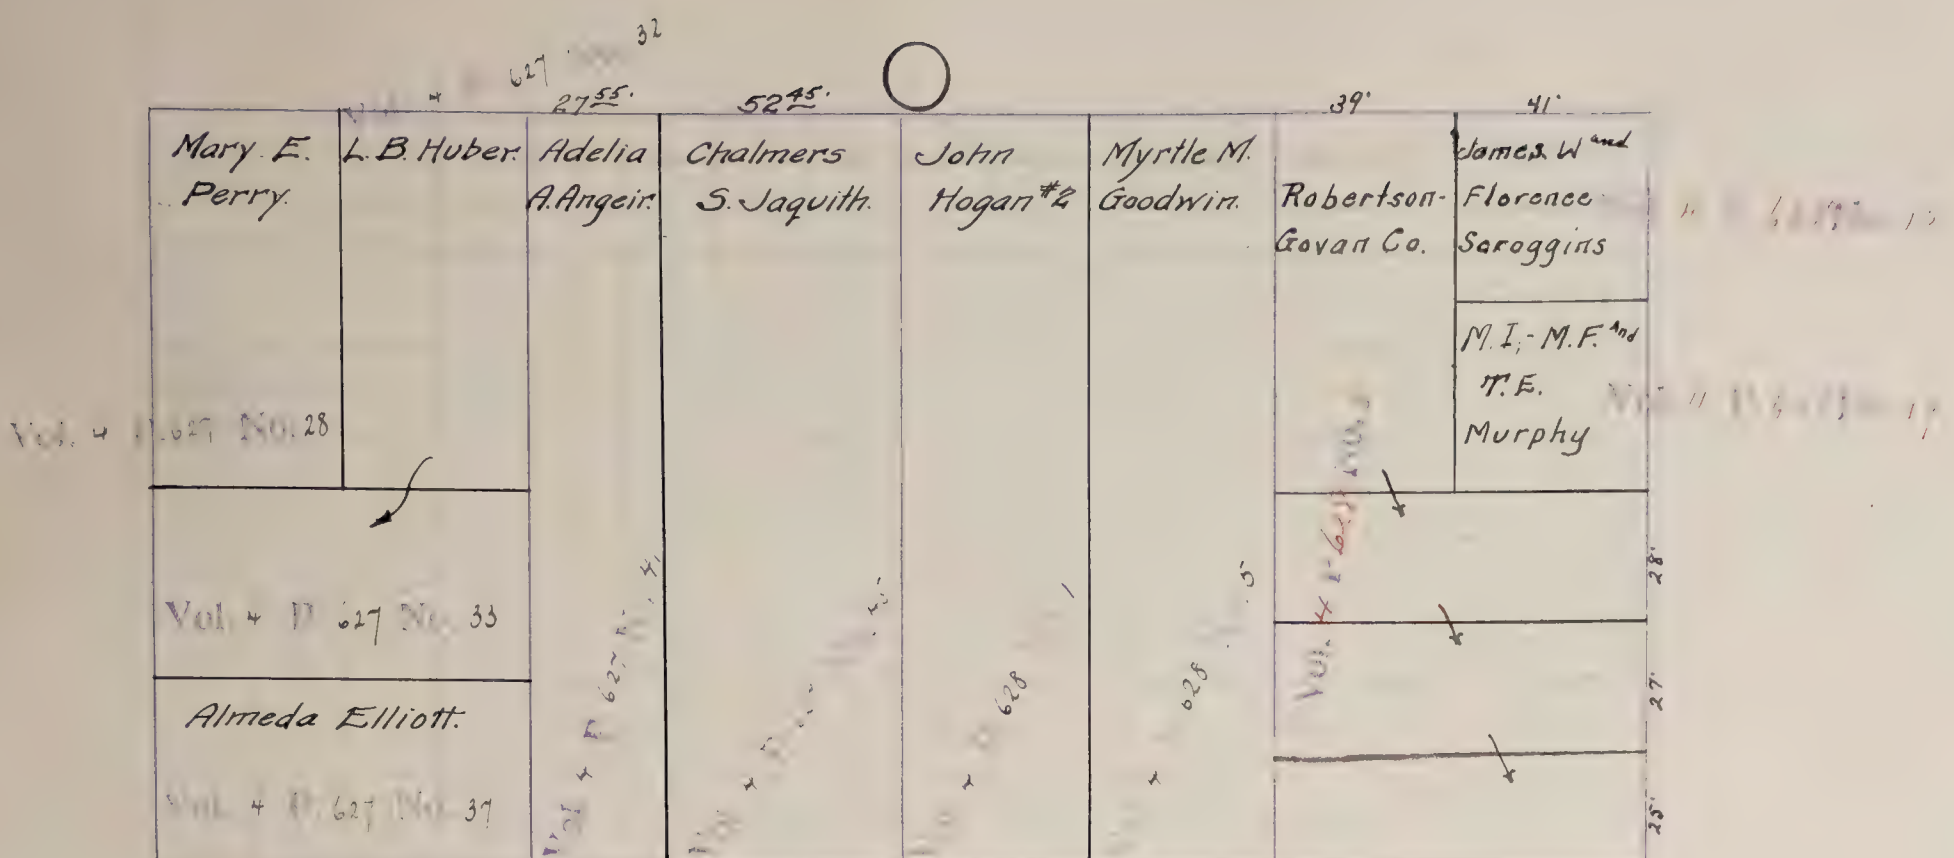 627 32
4
27 55.
52 45.
39'
41'
Mary. E.
Perry.
L. B. Huber.
Adelia
A. Angeir.
Chalmers
S. Jaquith.
John
Hogan #2
Myrtle M.
Goodwin.
Robertson-
Govan Co.
James. W and
Florence
Scroggins
M. I,- M. F. And
T. E.
Murphy
Vol. 4 P. 627 No. 28
Vol. 4 P. 627 No. 33
Almeda Elliott.
Vol. 4 P. 627 No. 37
Vol 4 P 627
4
4 628 1
4 628 5
Vol. 4
28'
27'
25'